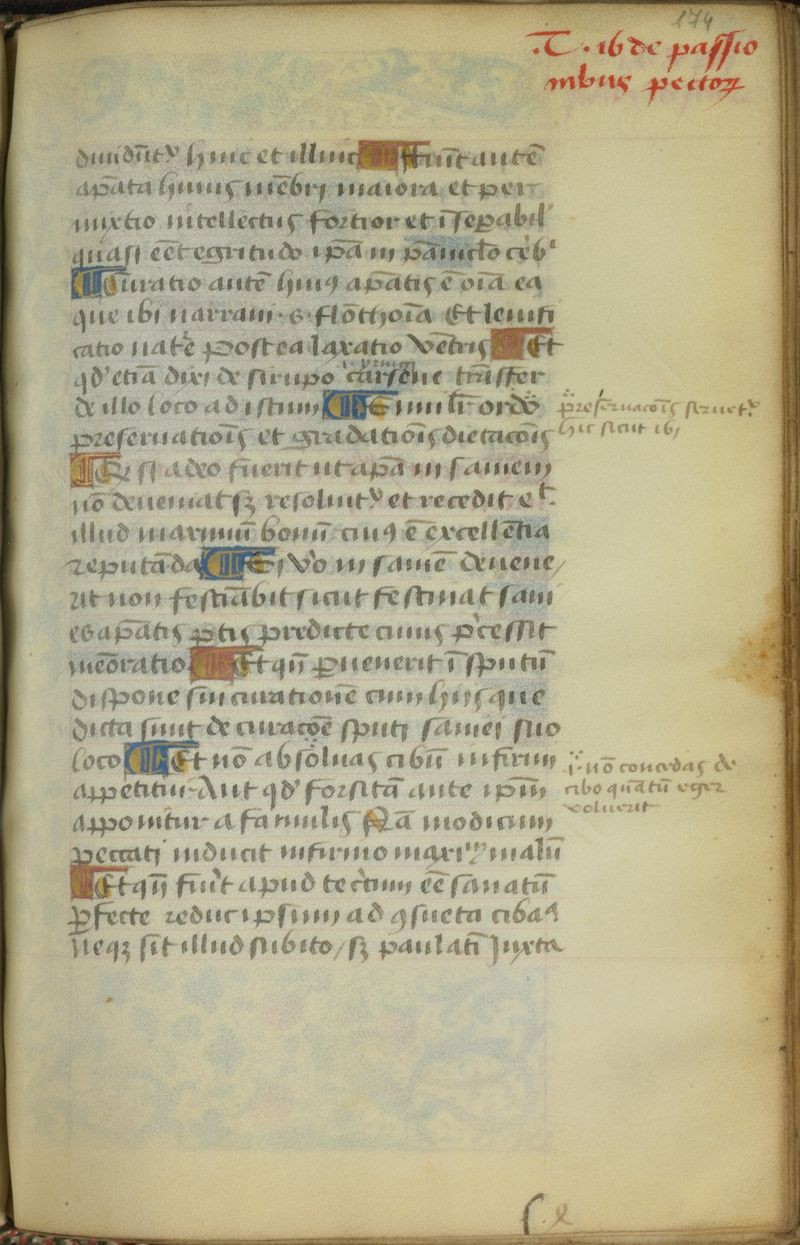 174
.T. 16 de passio
nibus pectoꝝ
diuidūtr̄ hinc et illinc ¶ Fiūt autē
apāta huius mēbrj maiora et per
mixtio intellectus fortior et īseꝑabil'
quasi eēt egritudo ipā in pāniclo
¶ Curatio autē huiꝯ apātis ē oīa ea
que ibi narraui .s. flōthoīa Et lenifi
catio nat'e Postea laxatio vētris ¶ Et
qd' etiā dixi de sirupo trāsfer
de illo loco ad istum ¶ Et similr̄ ordo
preseruatiōis et gradatiōis dietacōis
¶ Et si adeo fuerit ut apā in saniem
nō deueniat sꝫ resoluitr̄ et recedit
illud maximū bonū cuiꝯ ē excellētia
reputāda ¶ Si vo in saniē deuene/
rit non festīabit sicut festinat sani
es apātis ꝑtis predicte cuius p̄cessit
meōratio ¶ Et qn̄ ꝑuenerit ī sputū
dispone sm̄ curationē cum hijs que
dicta sunt de curacōe sputj saniei suo
loco ¶ Et nō absoluas cibū infirm
appetitui Aut qd' forsitā ante ipm̄
apponitur a famulis Nā modicum
peccati inducit infirmo maxim̄ malū
¶ Et qn̄ fiu't apud te c'tum eē sanatū
ꝑfecte reduc ipsum ad ꝯsueta cibaa
Neqꝫ sit illud subito/ sꝫ paulatī Juxta
preseruacōis seruetr̄
hic sicut ibj
i. nō concedas de
cibo quātū eger
voluerit